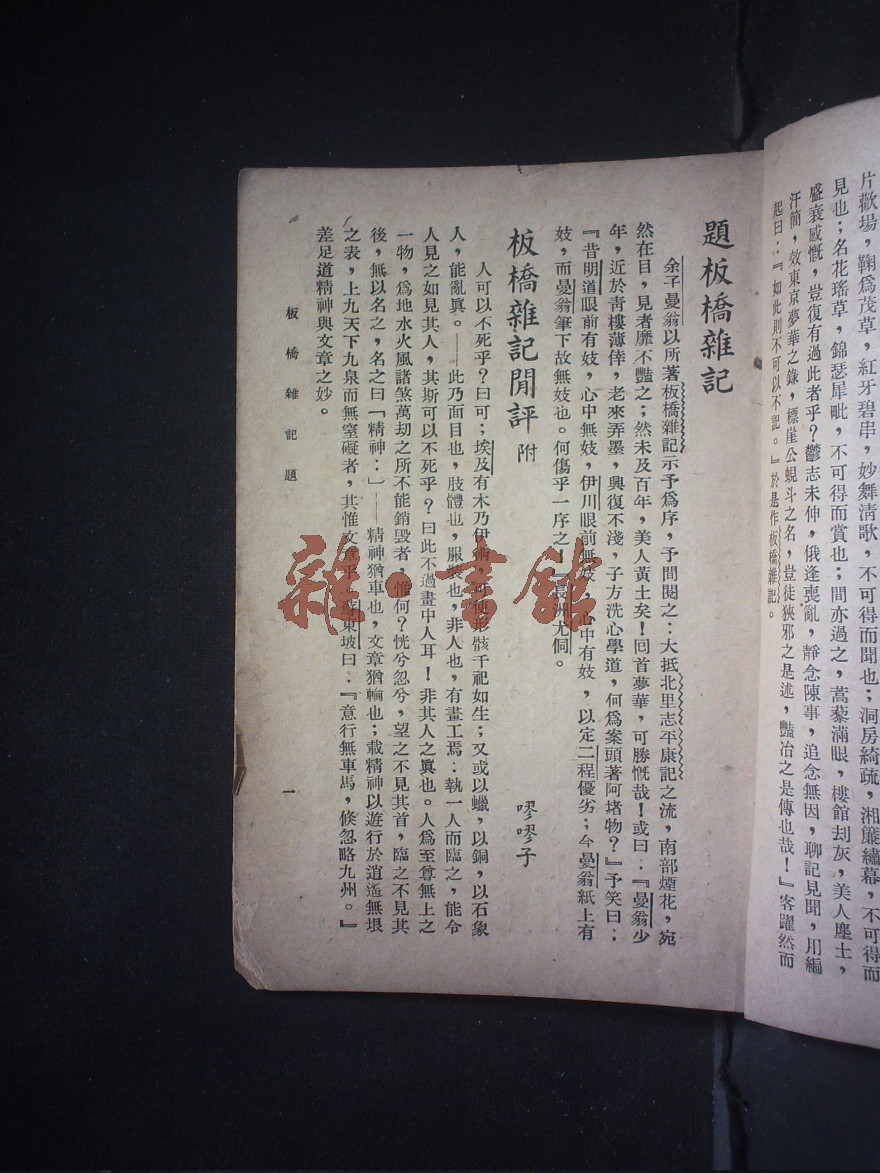 片歡場，鞠爲茂草，紅牙碧串，妙舞淸歌，不可得而聞也；洞房綺疏，湘簾繡幕，不可得而
見也；名花瑤草，錦瑟犀毗，不可得而賞也；間亦過之，蒿藜滿眼，樓館刦灰，美人塵土，
盛衰感慨，豈復有過此者乎？鬱志未伸，俄逢喪亂，靜念陳事，追念無因，聊記見聞，用編
汗簡，效東京夢華之錄，標崖公蜆斗之名，豈徒狹邪之是述，豔冶之是傳也哉！』客躍然而
起曰：『如此則不可以不記。』於是作板橋雜記。
題板橋雜記
余子曼翁以所著板橋雜記示予爲序，予間閱之：大抵北里志平康記之流，南部煙花，宛
然在目，見者靡不豔之；然未及百年，美人黃土矣！回首夢華，可勝慨哉！或曰：『曼翁少
年，近於青樓薄倖，老來弄墨，興復不淺，子方洗心學道，何爲案頭著阿堵物？』予笑曰：
『昔明道眼前有妓，心中無妓，伊川眼前無妓，心中有妓，以定二程優劣；今曼翁紙上有
妓，而曼翁筆下故無妓也。何傷乎一序之！』長洲尤侗。
板橋雜記閒評 附
嘐嘐子
人可以不死乎？曰可；埃及有木乃伊術，可使形骸千祀如生；又或以蠟，以銅，以石象
人，能亂眞。——此乃面目也，肢體也，服裝也，非人也，有畫工焉：執一人而臨之，能令
人見之如見其人，其斯可以不死乎？曰此不過畫中人耳！非其人之眞也。人爲至尊無上之
一物，爲地水火風諸煞萬劫之所不能銷毀者，惟何？恍兮忽兮，望之不見其首，臨之不見其
後，無以名之，名之曰「精神：」——精神猶車也，文章猶輪也；載精神以遊行於逍遙無垠
之表，上九天下九泉而無窒礙者，其惟文章乎！蘇東坡曰：『意行無車馬，倏忽略九州。』
差足道精神與文章之妙。
板橋雜記 題
一
雜·書館